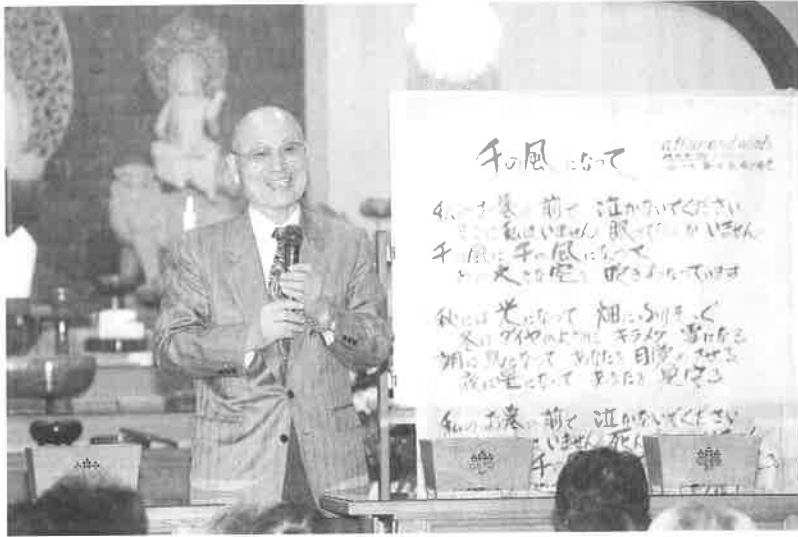 千の風になって
私のお墓の前で 泣かないでください
そこに私はいません 眠ってなんかいません
千の風に 千の風になって
あの 大きな空を 吹きわたっています
秋には 光になって 畑にふりそそぐ
冬は ダイヤのように キラメク 雪になる
朝は 鳥になって あなたを 目覚めさせる
夜は 星になって あなたを 見守る
私のお墓の前で 泣かないでください
いません 死ん
千の